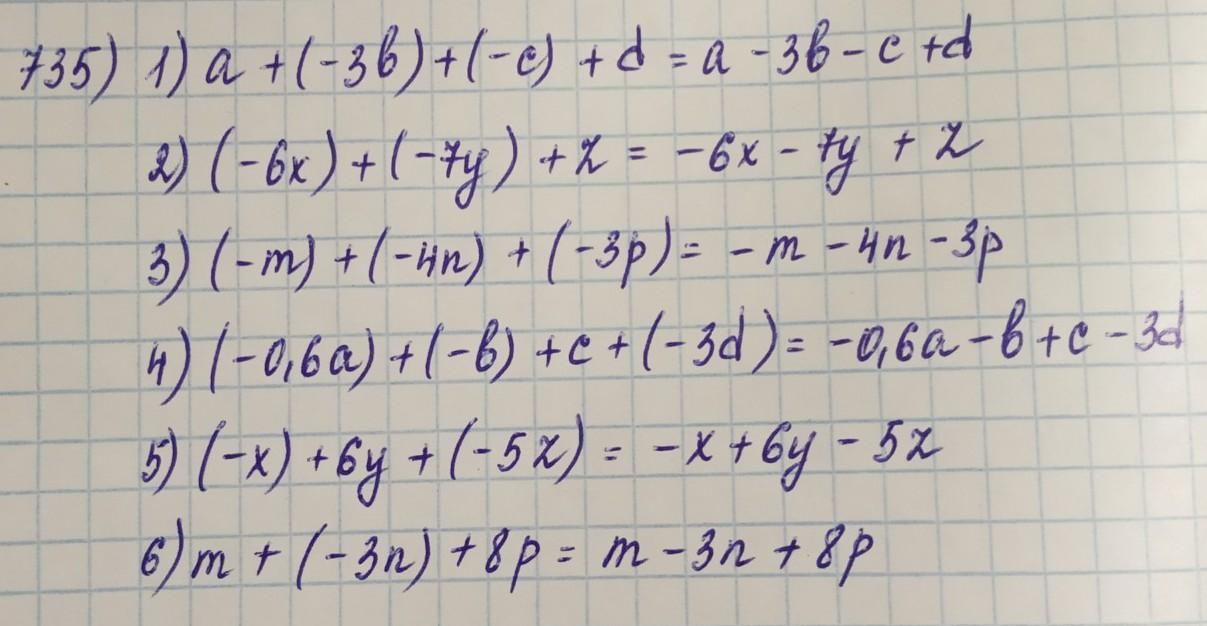 735) 1) a + (-3b) + (-c) + d = a - 3b - c + d
2) (-6x) + (-7y) + z = -6x - 7y + z
3) (-m) + (-4n) + (-3p) = -m - 4n - 3p
4) (-0,6a) + (-b) + c + (-3d) = -0,6a - b + c - 3d
5) (-x) + 6y + (-5z) = -x + 6y - 5z
6) m + (-3n) + 8p = m - 3n + 8p